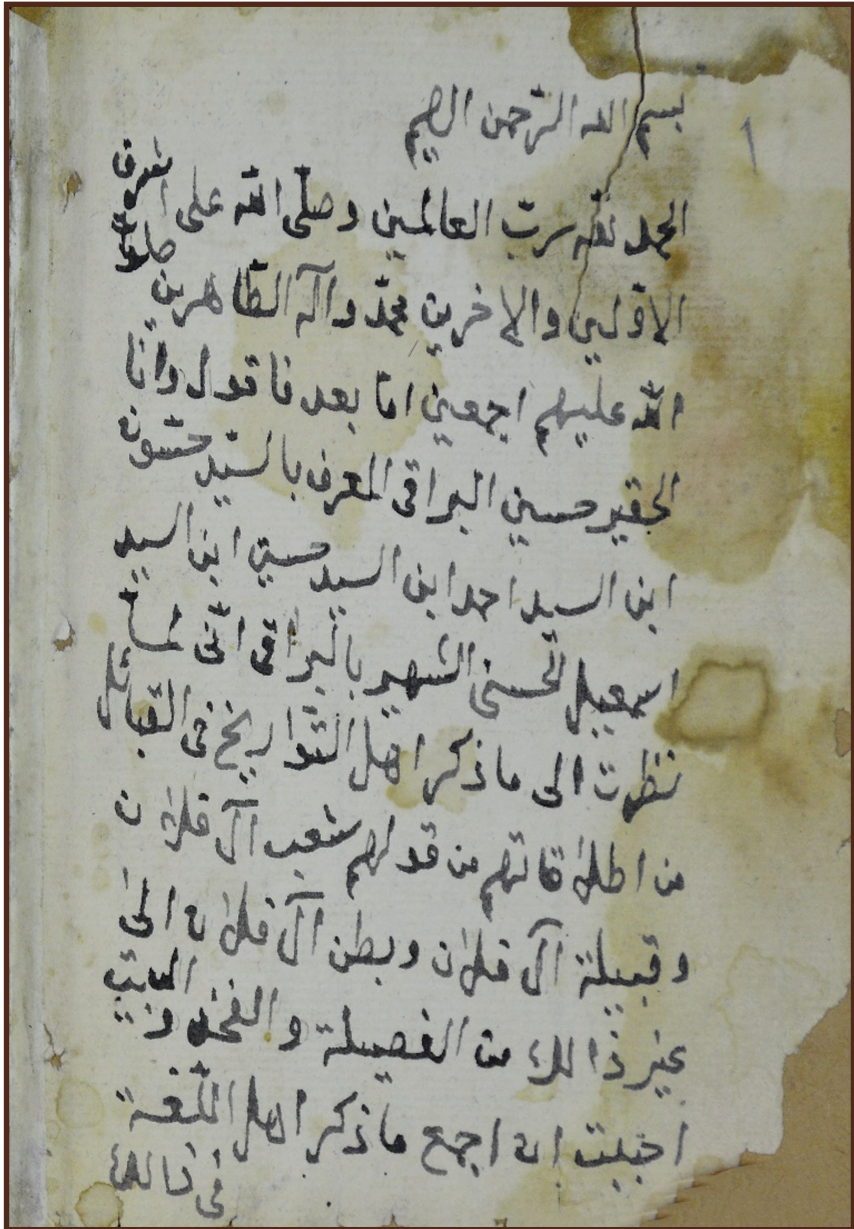 بسم الله الرّحمن الرحيم
١
الحمد لله رب العالمين وصلّى الله على اشرف
الاوّلين والاخرين محمّد وآله الطّاهرين صلوة
الله عليهم اجمعين امّا بعد فاقول وانّا
الحقير حسين البراقي المعرف بالسّيد حسّون
ابن السيد احمد ابن السيد حسين ابن السيد
اسمعيل الحسنى الشهير بالبراقي انّى لمّا
نظرت الى ما ذكر اهل التّواريخ فى القبائل
من اطلاقاتهم من قولهم شعب آل فلان
وقبيلة آل فلان وبطن آل فلان الى
غير ذالك من الفصيلة والفخذ والبيت
احببت ان اجمع ما ذكر اهل اللّغة
فى ذالك